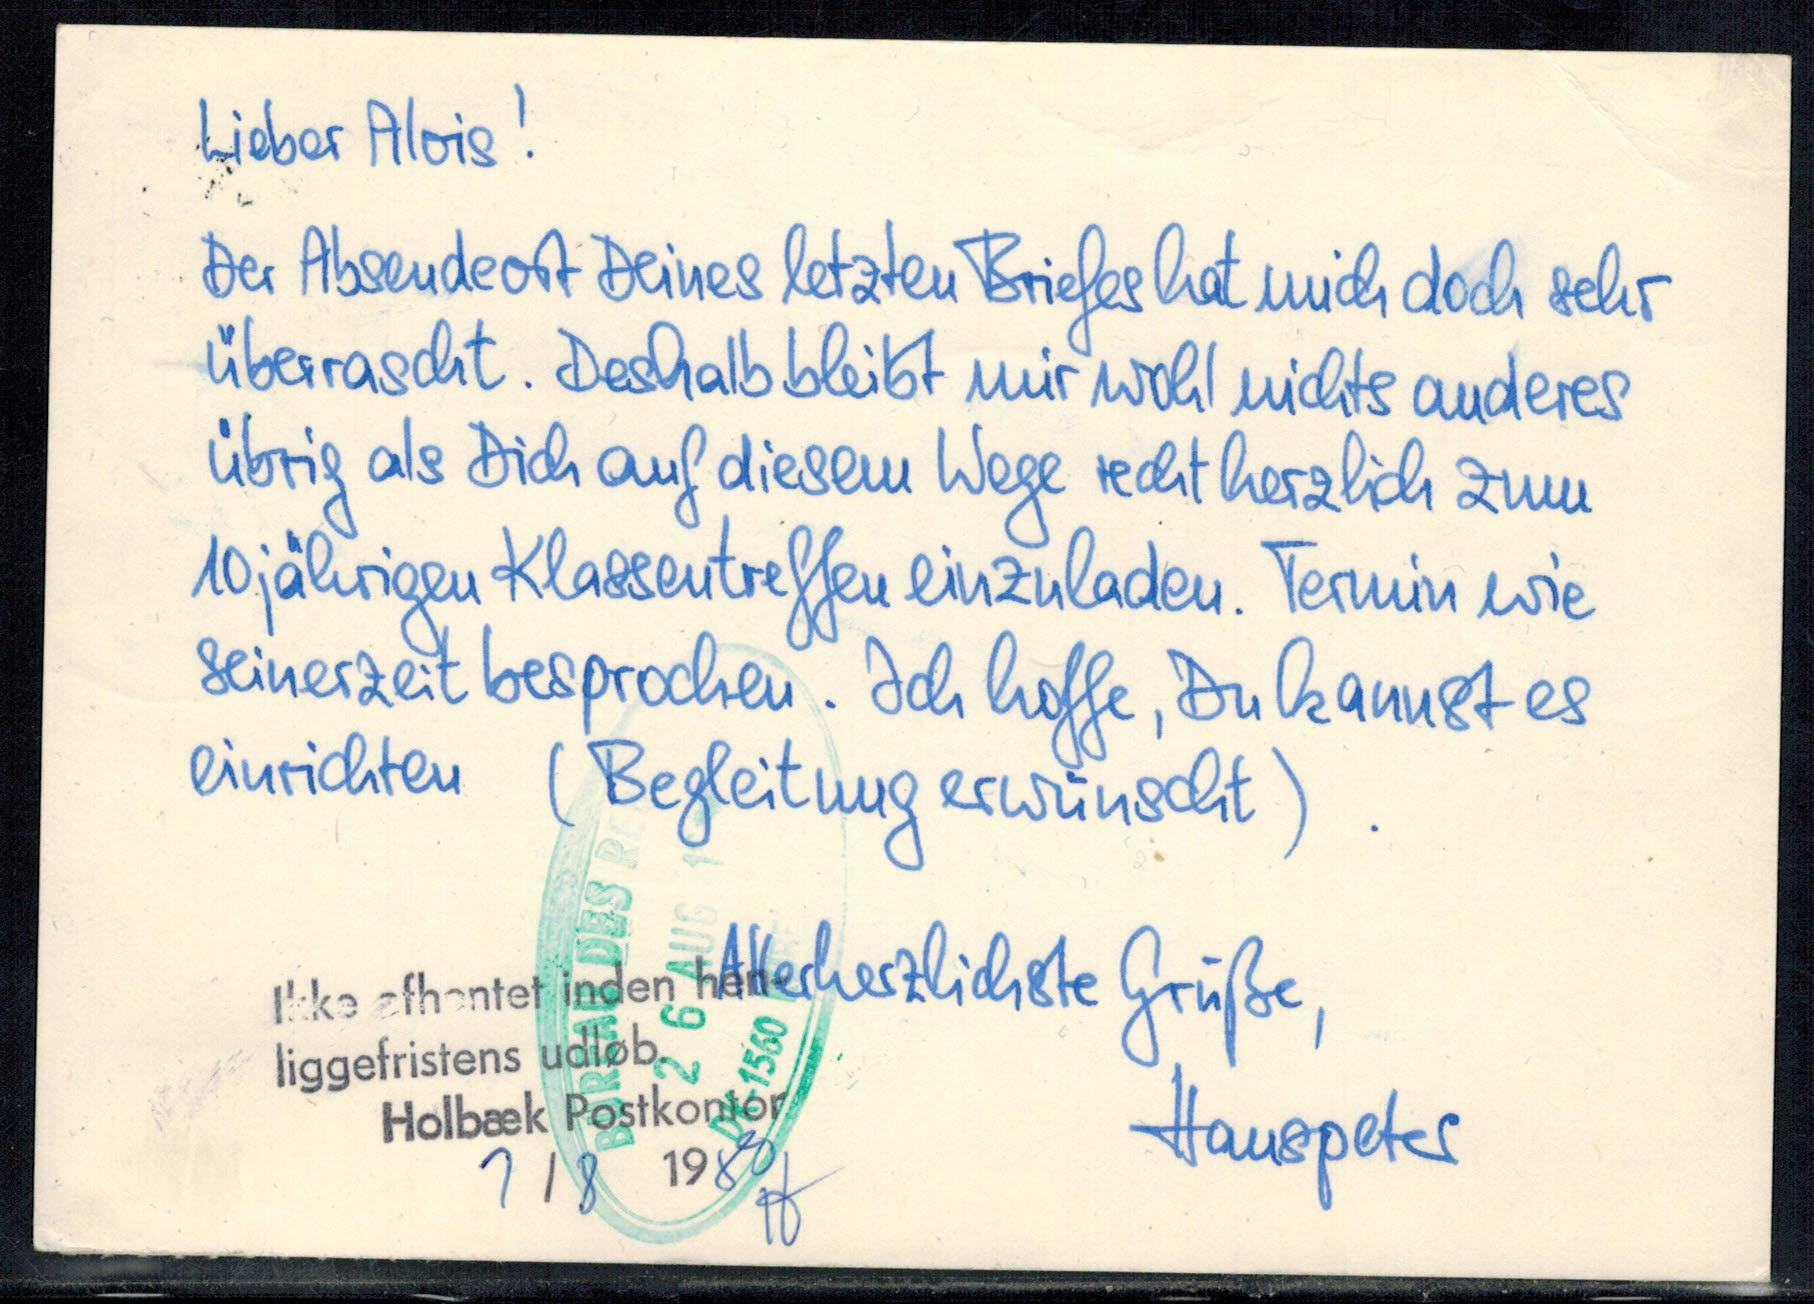 Lieber Alois!
Der Absendeort Deines letzten Briefes hat mich doch sehr
überrascht. Deshalb bleibt mir wohl nichts anderes
übrig als Dich auf diesem Wege recht herzlich zum
10jährigen Klassentreffen einzuladen. Termin wie
seinerzeit besprochen. Ich hoffe, Du kannst es
einrichten (Begleitung erwünscht).
Allerherzlichste Grüße,
Hanspeter
Ikke afhentet inden hen-
liggefristens udløb.
Holbæk Postkontor
7/8 1983
BUREAU DES RE
26 AUG 1
DK-1560